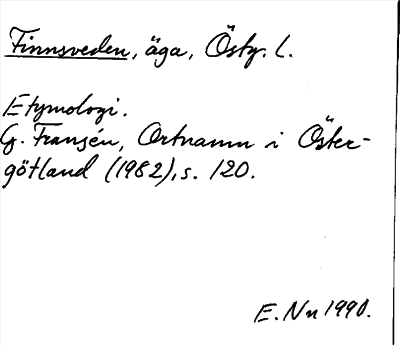 Finnsveden, äga, Östg. l.
Etymologi.
G. Franzén, Ortnamn i Öster-
götland (1982), s. 120.
E. Nn 1990.